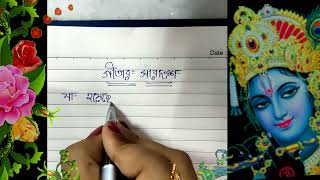 Date :
গীতার সারাংশ
যা- হয়েছে